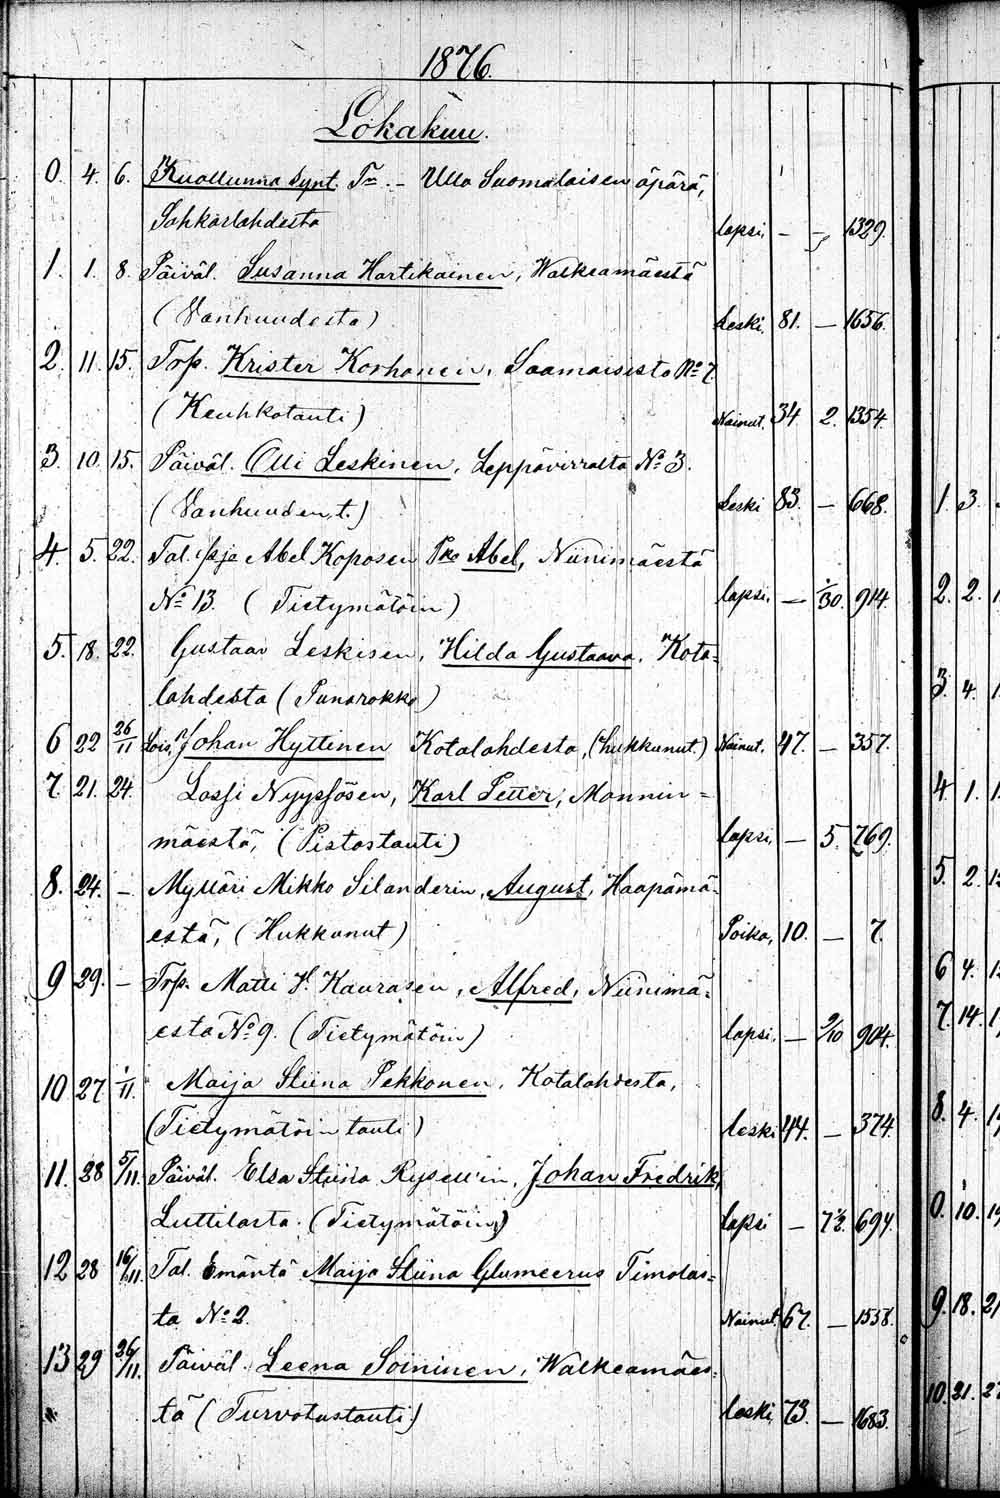 1876.
Lokakuu.
0. 4. 6. Kuollunna synt. Tr. - Ulla Suomalaisen äpärä,
Sahkarlahdesta lapsi, - - 1329.
1. 1. 8. Päiväl. Susanna Hartikainen, Walkeamäestä
(Vanhuudesta) Leski. 81. - 1656.
2. 11. 15. Torp. Krister Korhonen, Saamaisista No 7.
(Keuhkotauti) Nainut. 34 2. 1354.
3. 10. 15. Päiväl. Olli Leskinen, Leppävirralta No 3.
(Vanhuuden t.) Leski 83. - 668.
4. 5. 22. Tal. Abel Koposen Pka Abel, Niinimäestä
No 13. (Tietymätöin) lapsi. - 1/30. 914.
5. 18. 22. Gustaav Leskisen, Hilda Gustaava, Kota=
lahdesta (Punarokko)
6 22 26/11 Lois, Johan Hyttinen Kotalahdesta, (hukkunut.) Nainut. 47. - 357.
7. 21. 24. Lassi Nyyssösen, Karl Petter, Mannin=
mäestä, (Pistostauti) lapsi, - 5. 769.
8. 24. - Mylläri Mikko Silanderin, August, Haapamä=
estä, (Hukkunut) Poika, 10. - 7.
9 29. - Torp. Matti H. Kaurasen, Alfred, Niinimä=
estä No 9. (Tietymätöin) lapsi. - 9/10 904.
10 27 1/11. Maija Stiina Pekkonen, Kotalahdesta,
(Tietymätöin tauti) leski 44. - 374.
11. 28 5/11. Päiväl. Elsa Stiina Johan Fredrik,
Luttilasta. (Tietymätöin) lapsi - 7 1/2. 694.
12 28 16/11. Tal. Emäntä Maija Stiina Glumeerus Timolas=
ta No 2. Nainut. 67. - 1558.
13 29 26/11. Päiväl. Leena Soininen, Walkeamäes=
tä (Turvotustauti) leski, 73. - 1683.
1. 3.
2. 2.
3. 4.
4. 1.
5. 2.
6 4.
7. 14.
8. 4.
0. 10.
9. 18.
10. 21.